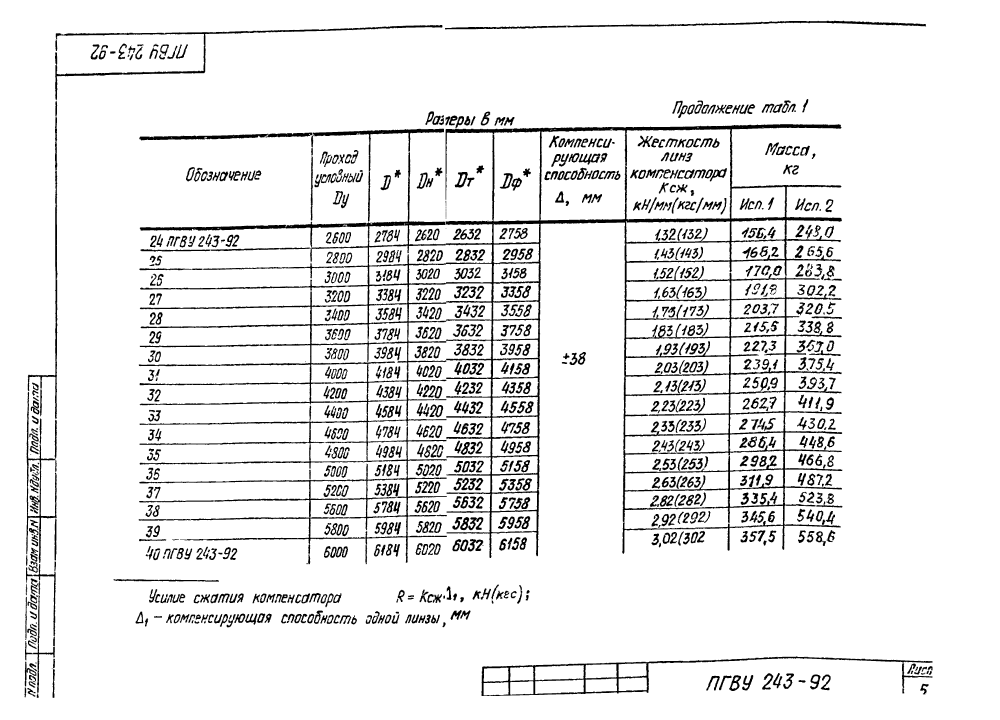 ПГВУ 243-92
Продолжение табл. 1
Размеры в мм
Обозначение
Проход условный Dу
D*
Dн*
Dт*
Dф*
Компенсирующая способность Δ, мм
Жесткость линз компенсатора Kсж, кН/мм(кгс/мм)
Масса, кг
Исп. 1
Исп. 2
24 ПГВУ 243-92 2600 2784 2620 2632 2758 1,32(132) 156,4 248,0
25 2800 2984 2820 2832 2958 1,43(143) 168,2 265,6
26 3000 3184 3020 3032 3158 1,52(152) 170,0 283,8
27 3200 3384 3220 3232 3358 1,63(163) 191,8 302,2
28 3400 3584 3420 3432 3558 1,73(173) 203,7 320.5
29 3600 3784 3620 3632 3758 1,83(183) 215,5 338,8
30 3800 3984 3820 3832 3958 ±38 1,93(193) 227,3 357,0
31 4000 4184 4020 4032 4158 2,03(203) 239,1 375,4
32 4200 4384 4220 4232 4358 2,13(213) 250,9 393,7
33 4400 4584 4420 4432 4558 2,23(223) 262,7 411,9
34 4600 4784 4620 4632 4758 2,33(233) 274,5 430,2
35 4800 4984 4820 4832 4958 2,43(243) 286,4 448,6
36 5000 5184 5020 5032 5158 2,53(253) 298,2 466,8
37 5200 5384 5220 5232 5358 2,63(263) 311,9 487,2
38 5600 5784 5620 5632 5758 2,82(282) 335,4 523,8
39 5800 5984 5820 5832 5958 2,92(292) 345,6 540,4
40 ПГВУ 243-92 6000 6184 6020 6032 6158 3,02(302 357,5 558,6
Усилие сжатия компенсатора R = Kсж·Δ₁, кН(кгс);
Δ₁ – компенсирующая способность одной линзы, мм
Инв. № подл. Подп. и дата Взам инв.№ Инв. № дубл. Подп. и дата
ПГВУ 243-92
Лист
5